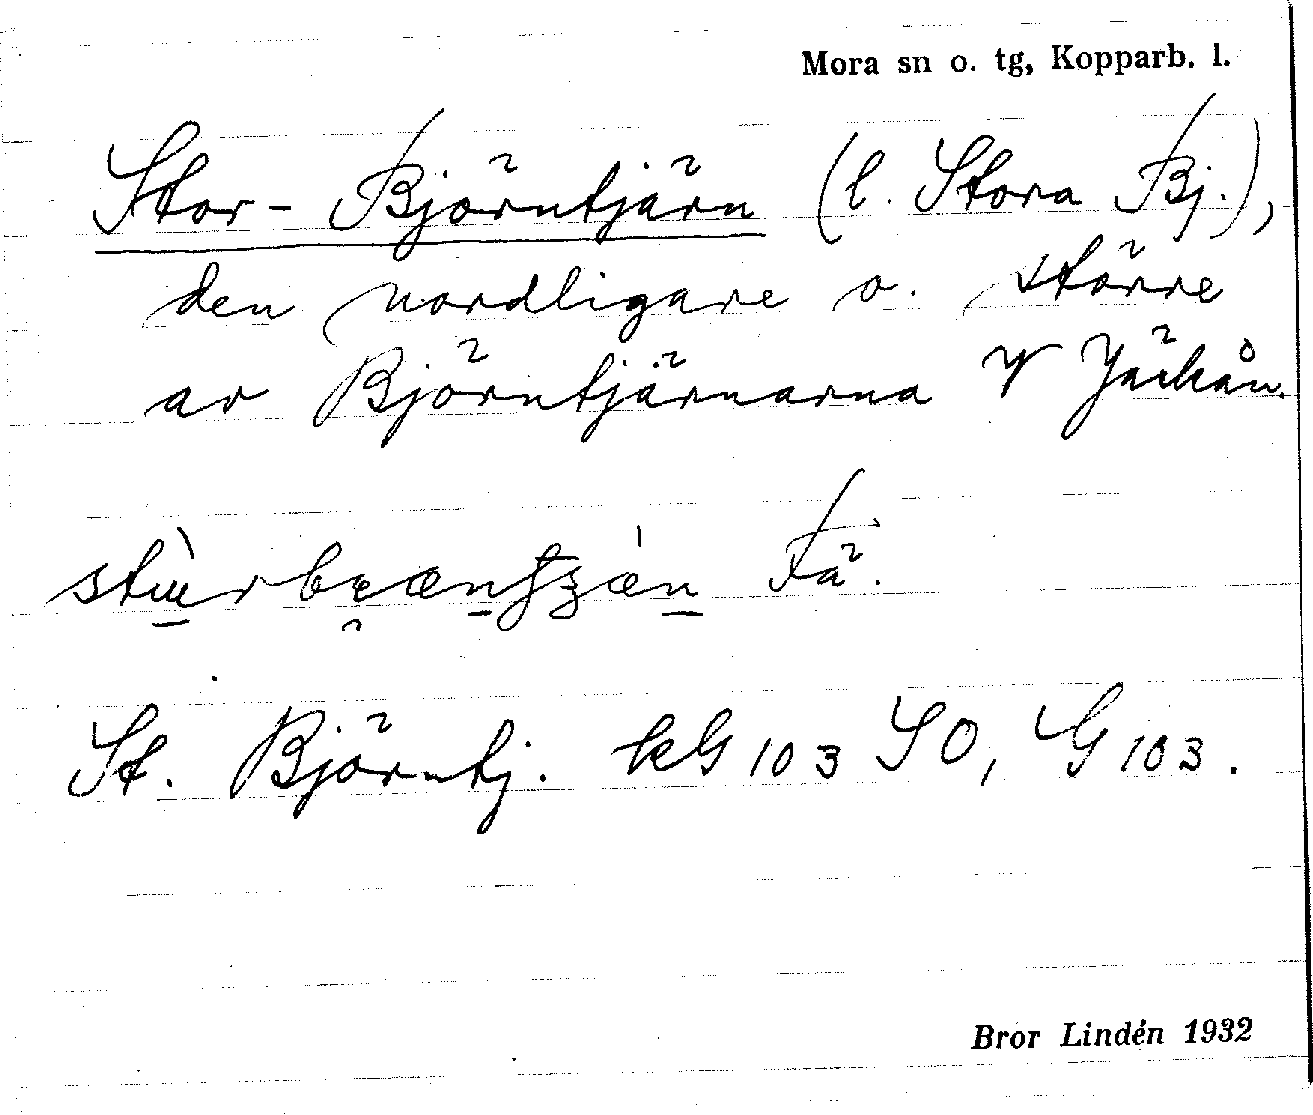 Mora sn o. tg, Kopparb. l.
Stor-Björntjärn (l. Stora Bj.),
den nordligare o. större
av Björntjärnarna V Jäckån.
Få.
St. Björntj. kG 103 SO, G 103.
Bror Lindén 1932